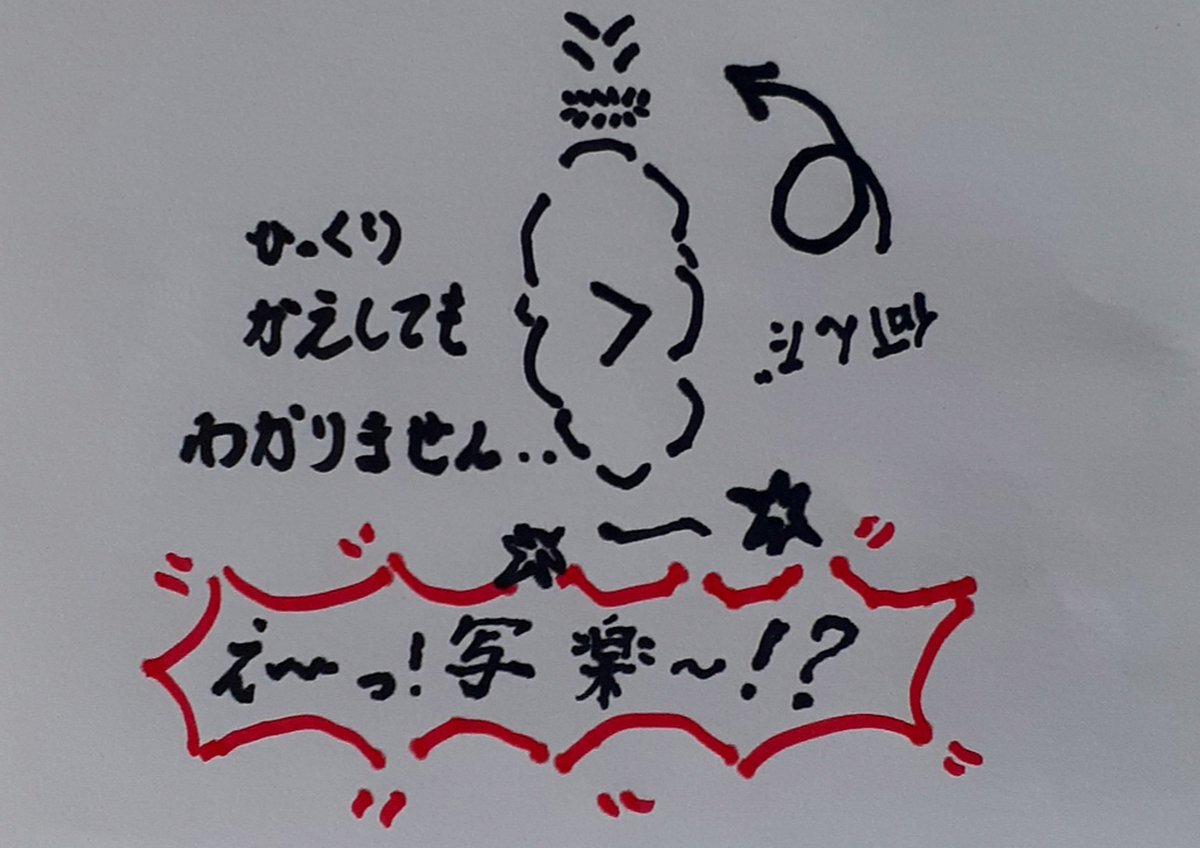 ひっくり
かえしても
わかりません‥
え〜っ!写楽〜!?